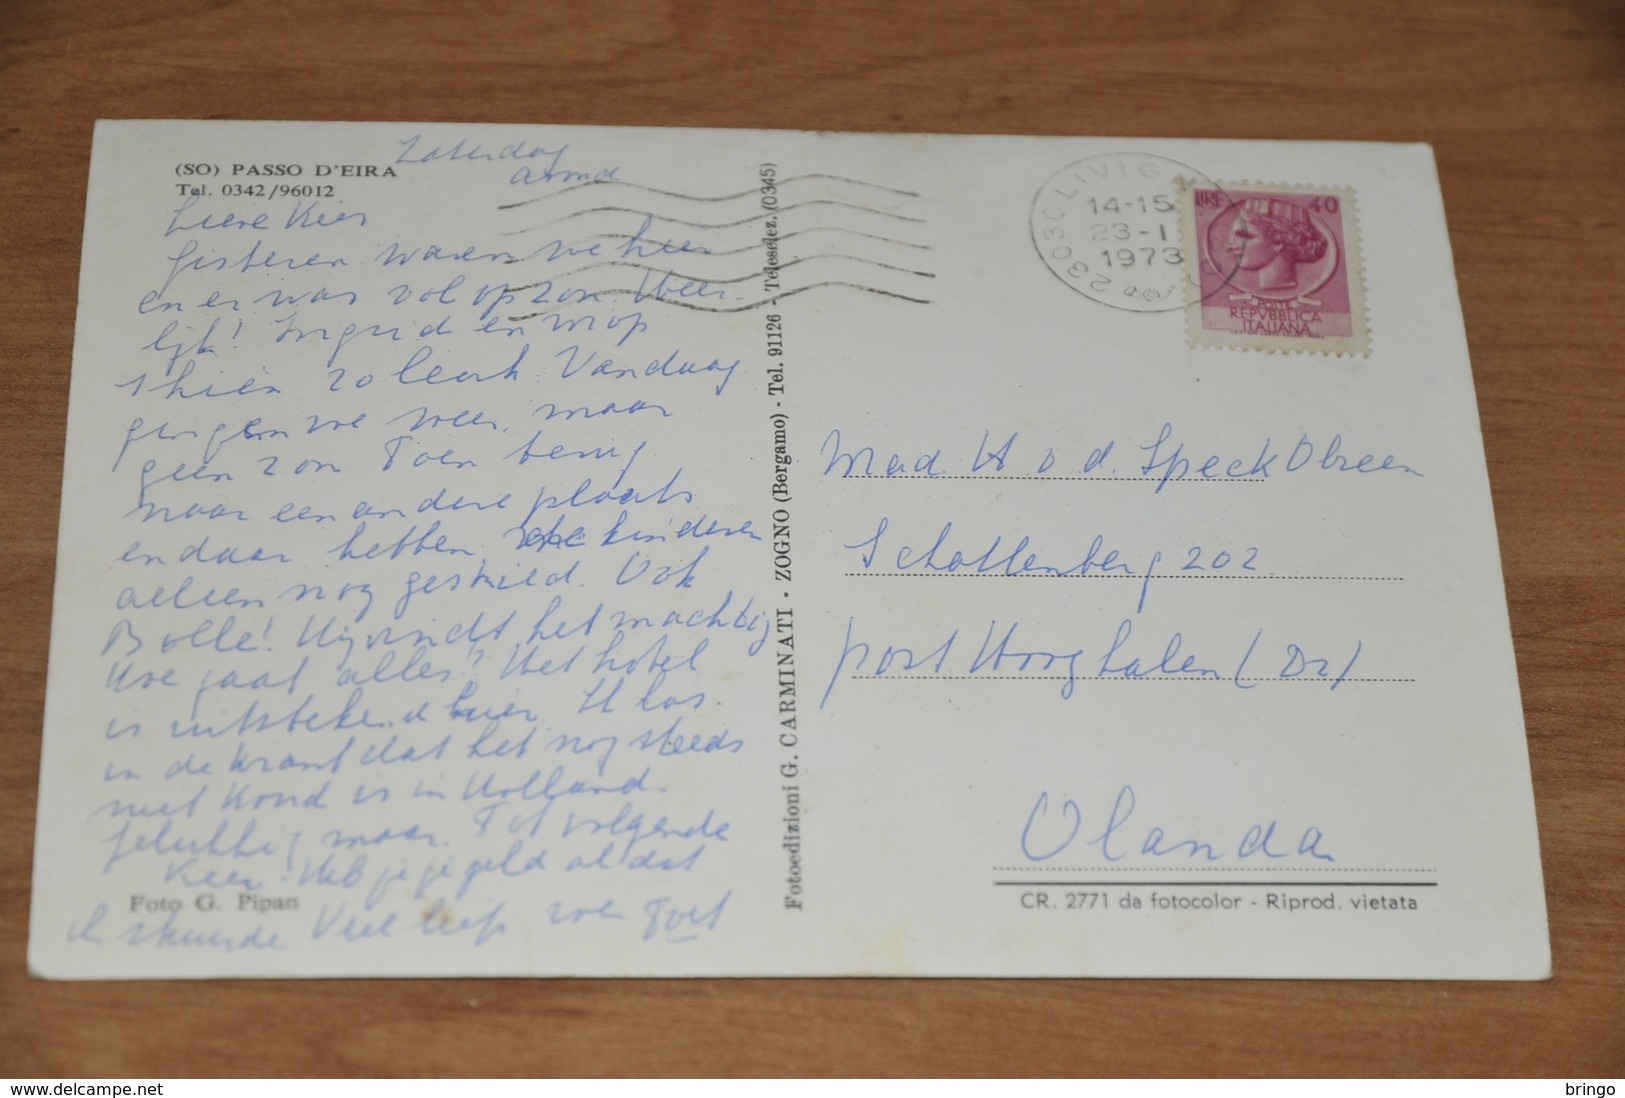 (SO) PASSO D'EIRA
Tel. 0342/96012
Zaterdag
avond
Lieve Kees
Gisteren waren we hier
en er was vol op zon. Heer-
lijk! Ingrid en Mop
skiën zo leuk. Vandaag
gingen we weer, maar
geen zon. Toen terug
naar een andere plaats
en daar hebben de kinderen
alleen nog geskied. Ook
Bolle! Hij vindt het machtig
Hoe gaat alles? Het hotel
is uitstekend hier. Ik las
in de krant dat het nog steeds
niet koud is in Holland.
Gelukkig maar. Tot volgende
Keer. Heb je je geld al dat
ik stuurde Veel liefs van Toet
Foto G. Pipan
Fotoedizioni G. CARMINATI - ZOGNO (Bergamo) - Tel. 91126 - Teleselez. (0345)
23030 LIVIGNO
14-15
23-1
1973
LIRE 40
POSTE
REPVBBLICA
ITALIANA
Mad H v d. Speck Obreen
Schottenberg 202
post Hooghalen (Dr)
Olanda
CR. 2771 da fotocolor - Riprod. vietata
bringo